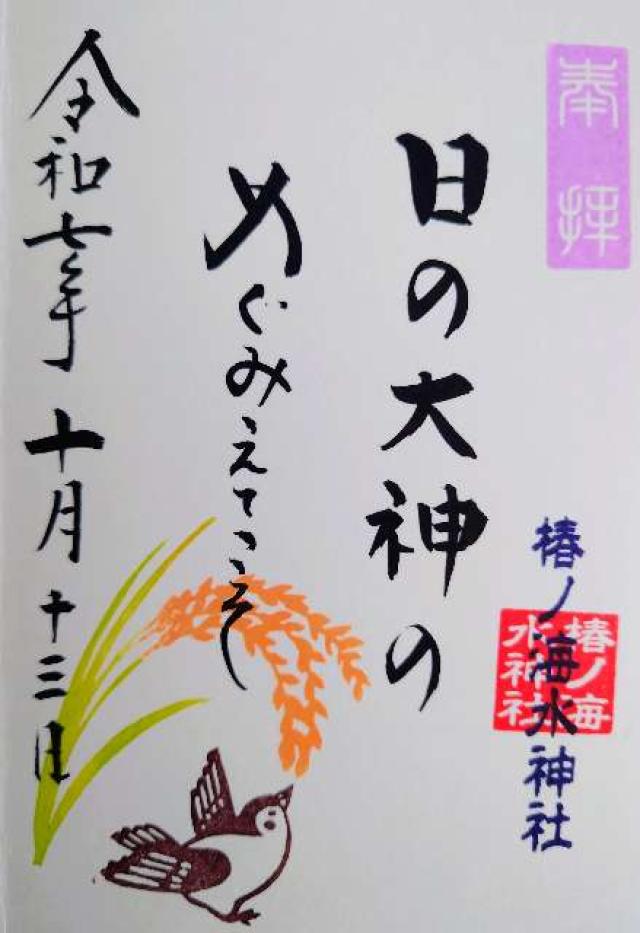 奉拝
椿ノ海水神社
椿ノ海
水神社
日の大神の
めぐみえてこそ
令和七年十月十三日